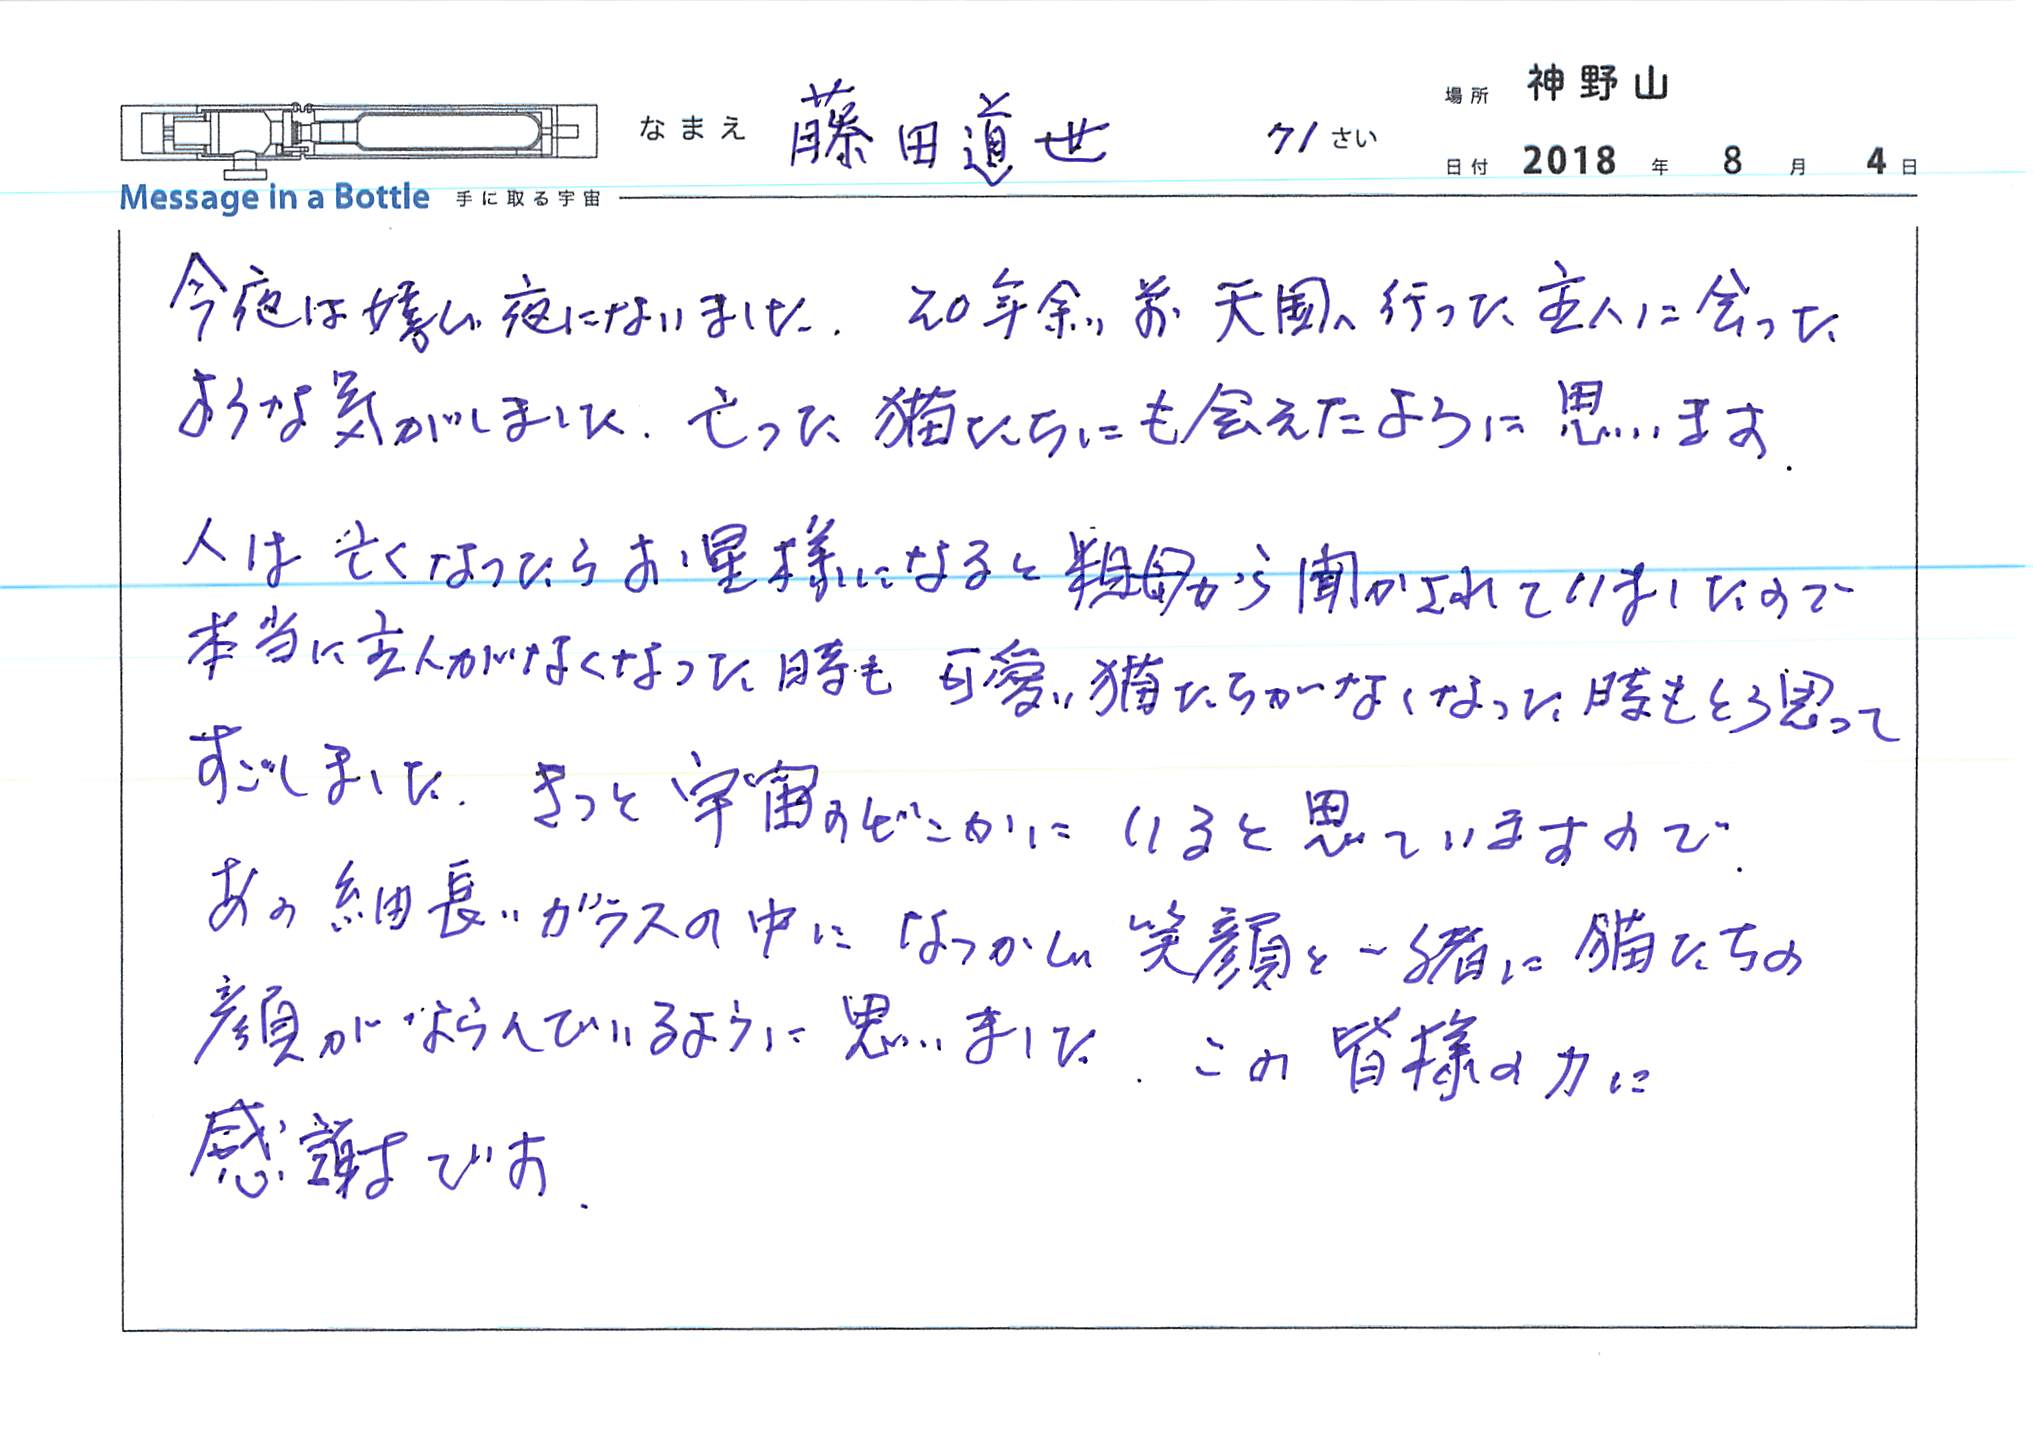 なまえ 藤田道世 71さい
場所 神野山
日付 2018年 8月 4日
Message in a Bottle 手に取る宇宙
今夜は嬉しい夜になりました. 20年余り前 天国へ行った主人に会った
ような気がしました. 亡った猫たちにも会えたように思います.
人は亡くなったらお星様になると祖母から聞かされていましたので
本当に主人がなくなった時も 可愛い猫たちがなくなった時もそう思って
すごしました. きっと宇宙のどこかにいると思ていますので.
あの細長いガラスの中に なつかしい笑顔と一緒に猫たちの
顔がならんでいるように思いました. この皆様の力に
感謝です.